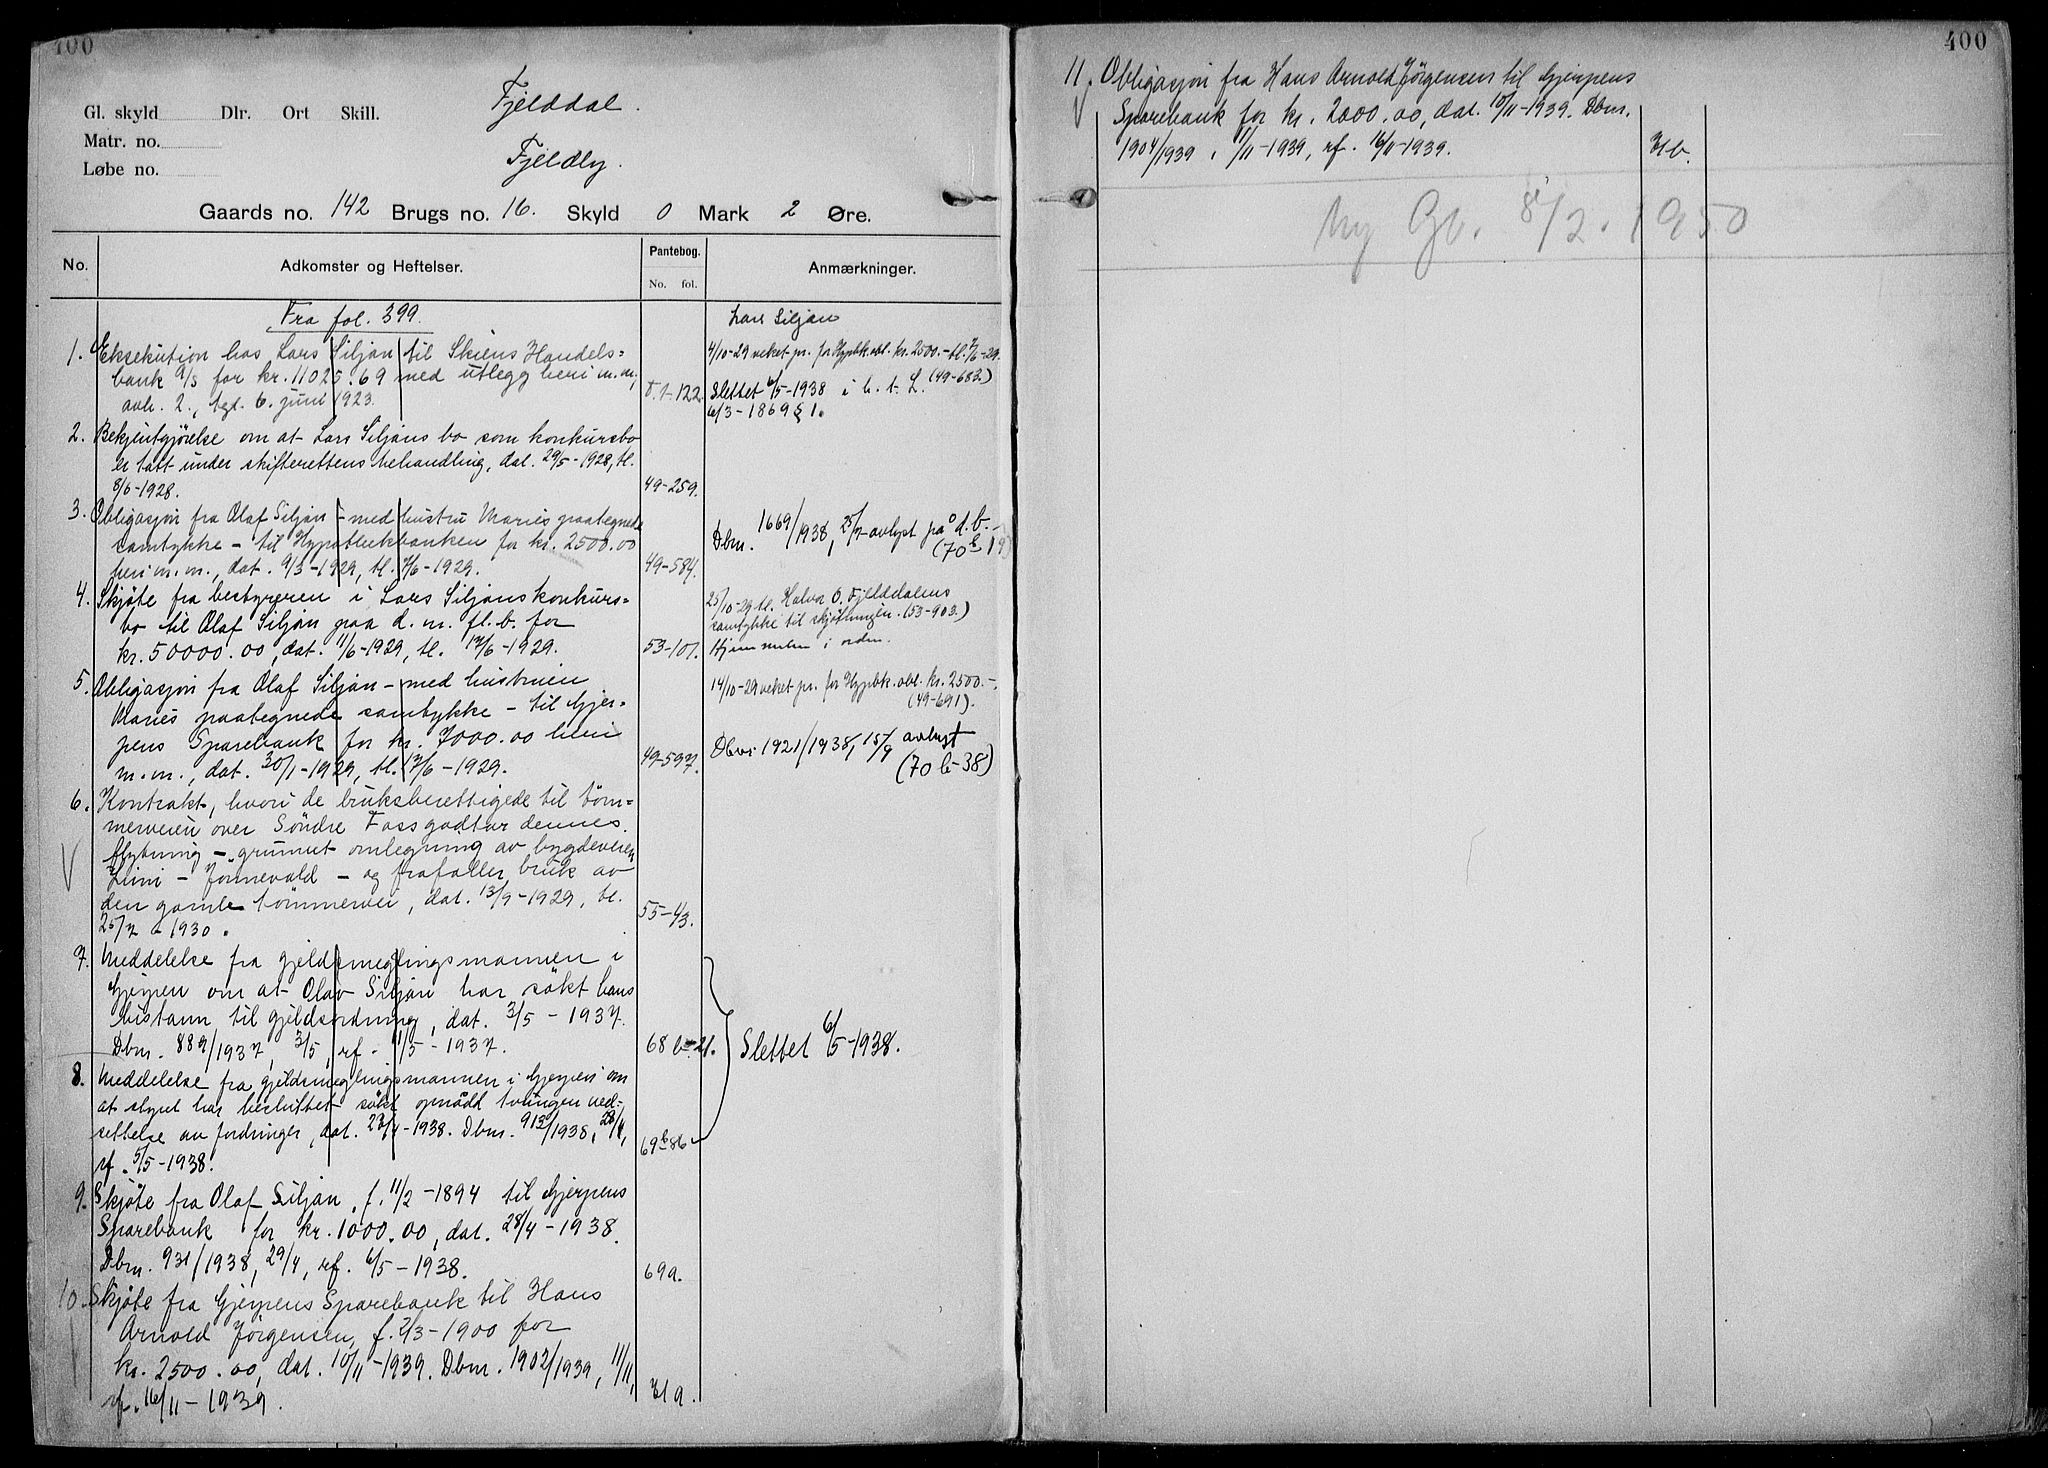 400
Gl. skyld Dlr. Ort Skill.
Fjelddal.
Matr. no.
Fjeldly.
Løbe no.
Gaards no. 142 Brugs no. 16. Skyld 0 Mark 2 Øre.
No. Adkomster og Heftelser. Pantebog. Anmærkninger.
No. fol.
Fra fol. 399.
1. Eksekution hos Lars Siljan til Skiens Handels=
bank A/S for kr. 11025.69 med utlegg heri m.m.,
avh. 2., tgl. 6. juni 1923.
122.
Lars Siljan
4/10-29 veket pr. for Hypbk. obl. kr. 2500.- tl. 7/6-29.
(49-683.)
Slettet 6/5-1938 i h. t. L.
6/3-1869 § 1.
2. Bekjentgjørelse om at Lars Siljans bo som konkursbo
er tatt under skifterettens behandling, dat. 29/5-1928, tl.
8/6-1928.
49-259.
3. Obligasjon fra Olaf Siljan - med hustru Maries paategnede
samtykke - til Hypotekbanken for kr. 2500.00
heri m.m., dat. 9/3-1929, tl. 7/6-1929.
49-584.
Dbm. 1669/1938, 25/7 avlyst på d. b.-
4. Skjøte fra bestyreren i Lars Siljans konkurs=
bo til Olaf Siljan paa d. m. fl. b. for
kr. 50000.00, dat. 11/6-1929, tl. 12/6-1929.
53-101.
25/10-29 tl. Halvor O. Fjelddalens
samtykke til skjøtningen. (53-903.)
Hjemmelen i orden.
5. Obligasjon fra Olaf Siljan - med hustruen
Maries paategnede samtykke - til Gjer=
pens Sparebank for kr. 7000.00 heri
m.m., dat. 30/1-1929, tl. 12/6-1929.
49-597.
14/10-29 veket pr. for Hypbk. obl. kr. 2500.-.
(49-691).
Dbm. 1921/1938, 15/9 avlyst
(70 b-38)
6. Kontrakt, hvori de bruksberettigede til tøm=
merveien over Søndre Foss godtar dennes
flytning - grunnet omlegning av bygdeveien
- og frafaller bruk av
den gamle tømmervei, dat. 13/9-1929, tl.
25/7 - 1930.
55-43.
7. Meddelelse fra gjeldsmeglingsmannen i
Gjerpen om at Olav Siljan har søkt hans
bistann til gjeldsordning, dat. 3/5 - 1937.
Dbm. 889/1937, 3/5, rf. 11/5 - 1937.
68 b-21.
Slettet 6/5-1938.
8. Meddelelse fra gjeldsmeglingsmannen i Gjerpen om
at styret har besluttet søkt opnådd tvungen ned-
settelse av fordringer, dat. 23/4-1938. Dbm. 913/1938, 28/4,
rf. 5/5-1938.
69 b 86
9. Skjøte fra Olaf Siljan, f. 11/2-1894 til Gjerpens
Sparebank for kr. 1000.00, dat. 28/4-1938.
Dbm. 931/1938, 29/4, rf. 6/5-1938.
69a.
10. Skjøte fra Gjerpens Sparebank til Hans
Arnold Jørgensen, f. 2/3-1900 for
kr. 2500.00, dat. 10/11-1939. Dbm. 1902/1939, 11/11,
rf. 16/11-1939.
71a.
400
11. Obligasjon fra Hans Arnold Jørgensen til Gjerpens
Sparebank for kr. 2000.00, dat. 10/11-1939. Dbm.
1904/1939, 11/11-1939, rf. 16/11-1939.
71b.
Ny Gb. 8/2. 1950